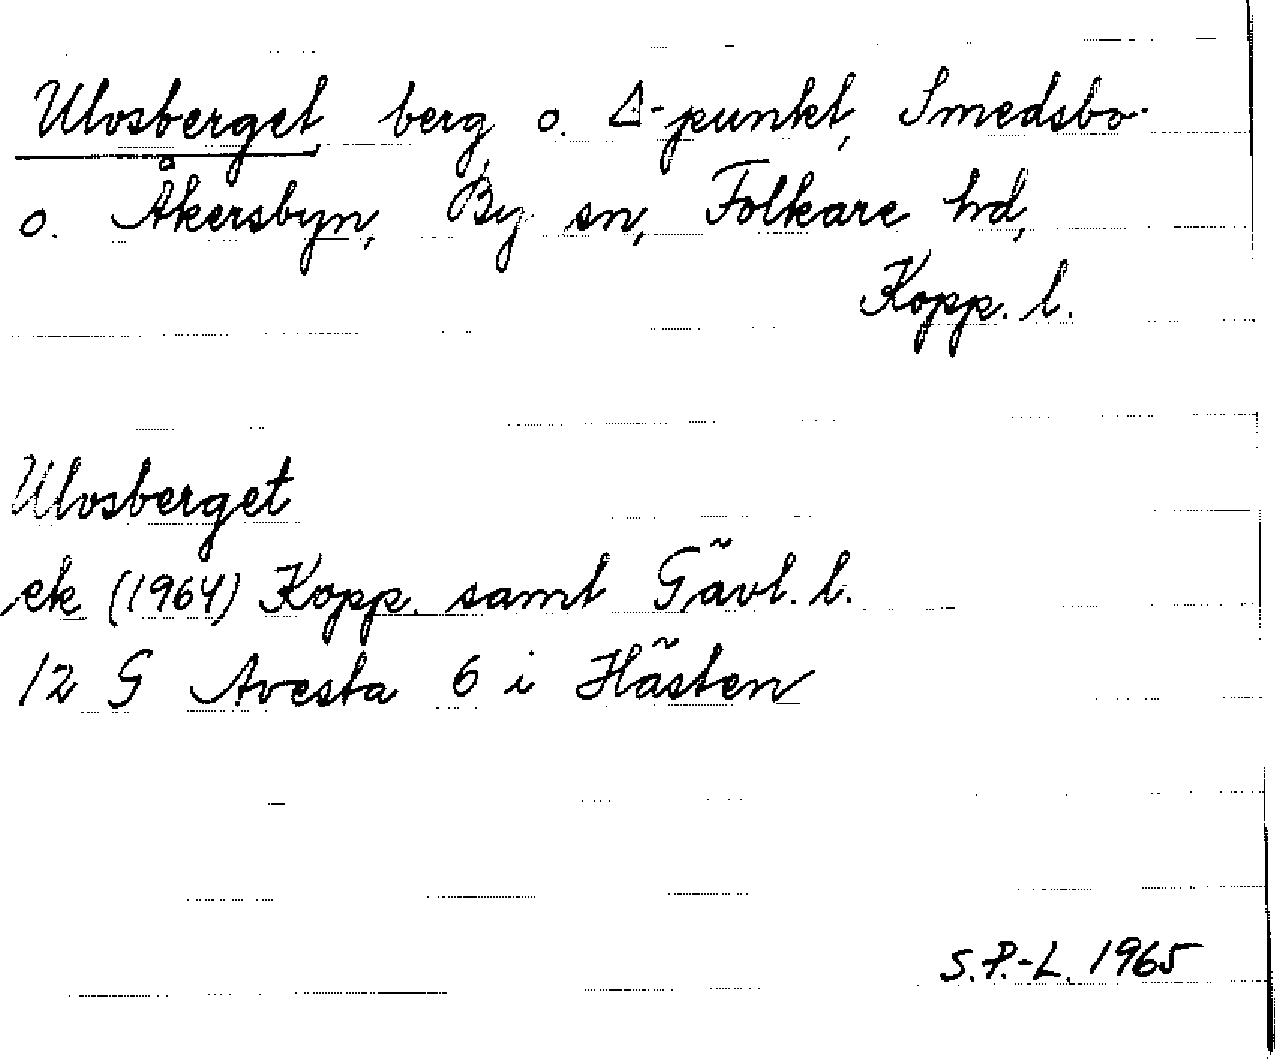 Ulvsberget, berg o. Δ-punkt, Smedsbo
o. Åkersbyn, By sn, Folkare hd,
Kopp. l.
Ulvsberget
ek (1964) Kopp. samt Gävl. l.
12 G Avesta 6 i Hästen
S.P.-L. 1965